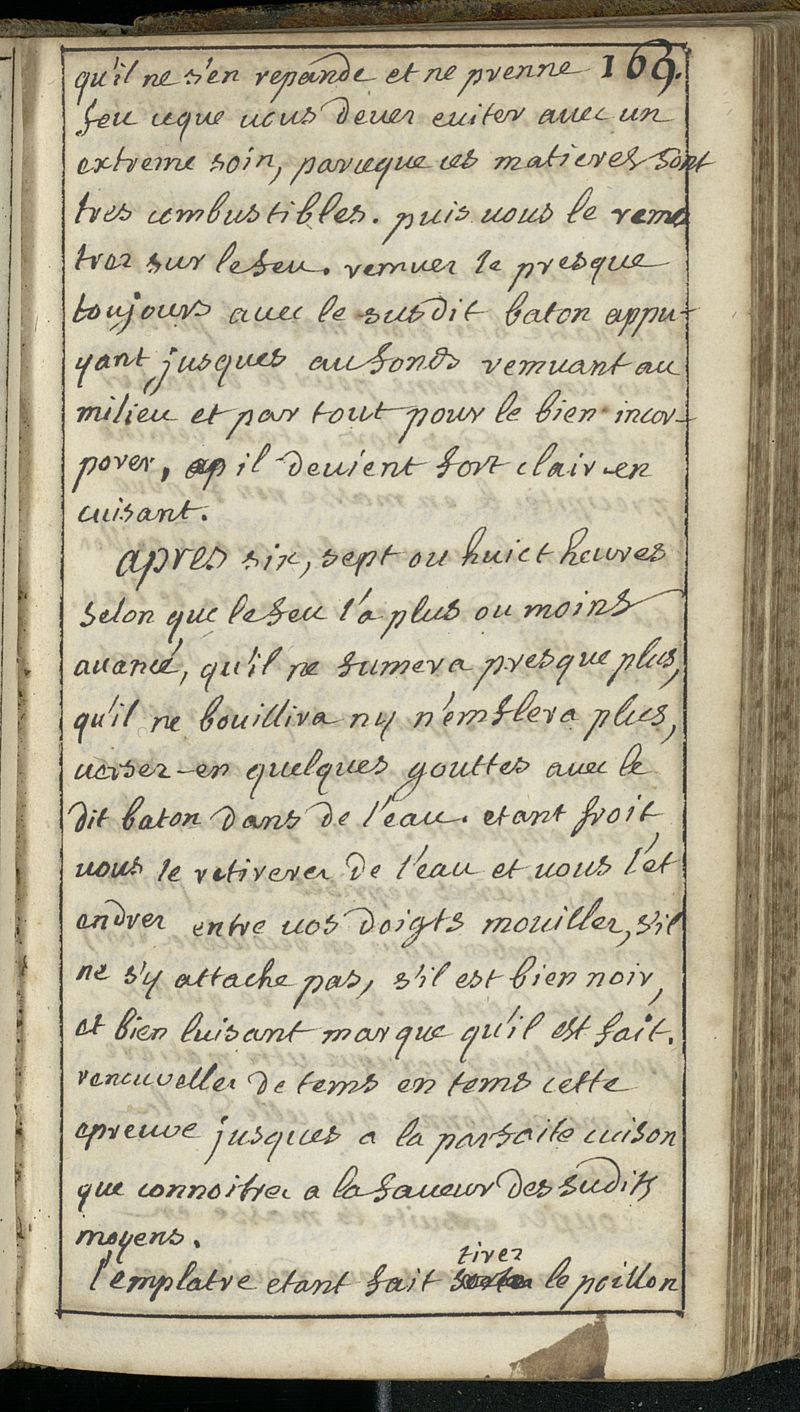 qu'il ne s'en repande et ne prenne 169.
feu ceque vous devez eviter avec un
extreme soin, parceque ces matieres sont
tres combustibles. puis vous le reme
trez sur le feu. remuez le presque
toujours avec le susdit baton appu-
yant jusques au fonds remuant au
milieu et par tout pour le bien incor-
porer, il devient fort clair en
cuisant.
apres six, sept ou huict heures
selon que le feu l'a plus ou moins
avancé, qu'il ne fumera presque plus,
qu'il ne bouillira ny n'emflera plus,
versez-en quelques gouttes avec le
dit baton dans de l'eau. etant froit,
vous le retirerez de l'eau et vous l'et
endrez entre vos doigts mouillez, s'il
ne s'y attache pas, s'il est bien noir,
et bien luisant marque qu'il est fait.
renouvellez de tems en tems cette
epreuve jusques a la parfaite cuison
que connoitrez a la faveur des sudits
moyens.
l'emplatre etant fait tirez le poillon